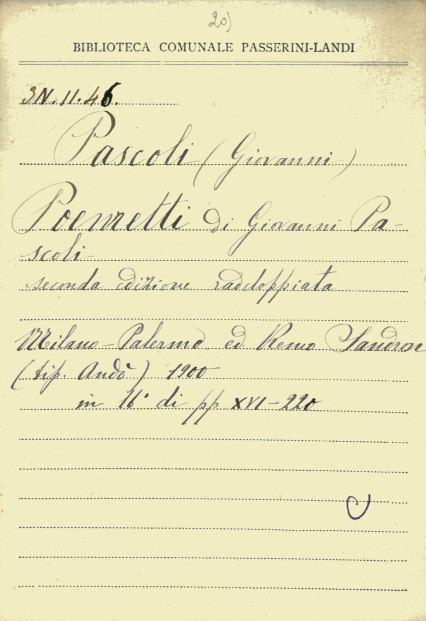 20)
BIBLIOTECA COMUNALE PASSERINI-LANDI
3N.11.46.
Pascoli (Giovanni)
Poemetti di Giovanni Pa-
scoli
seconda edizione raddoppiata
Milano-Palermo ed Remo Sandron
(tip. Andò) 1900
in 16° di pp XVI-220
C